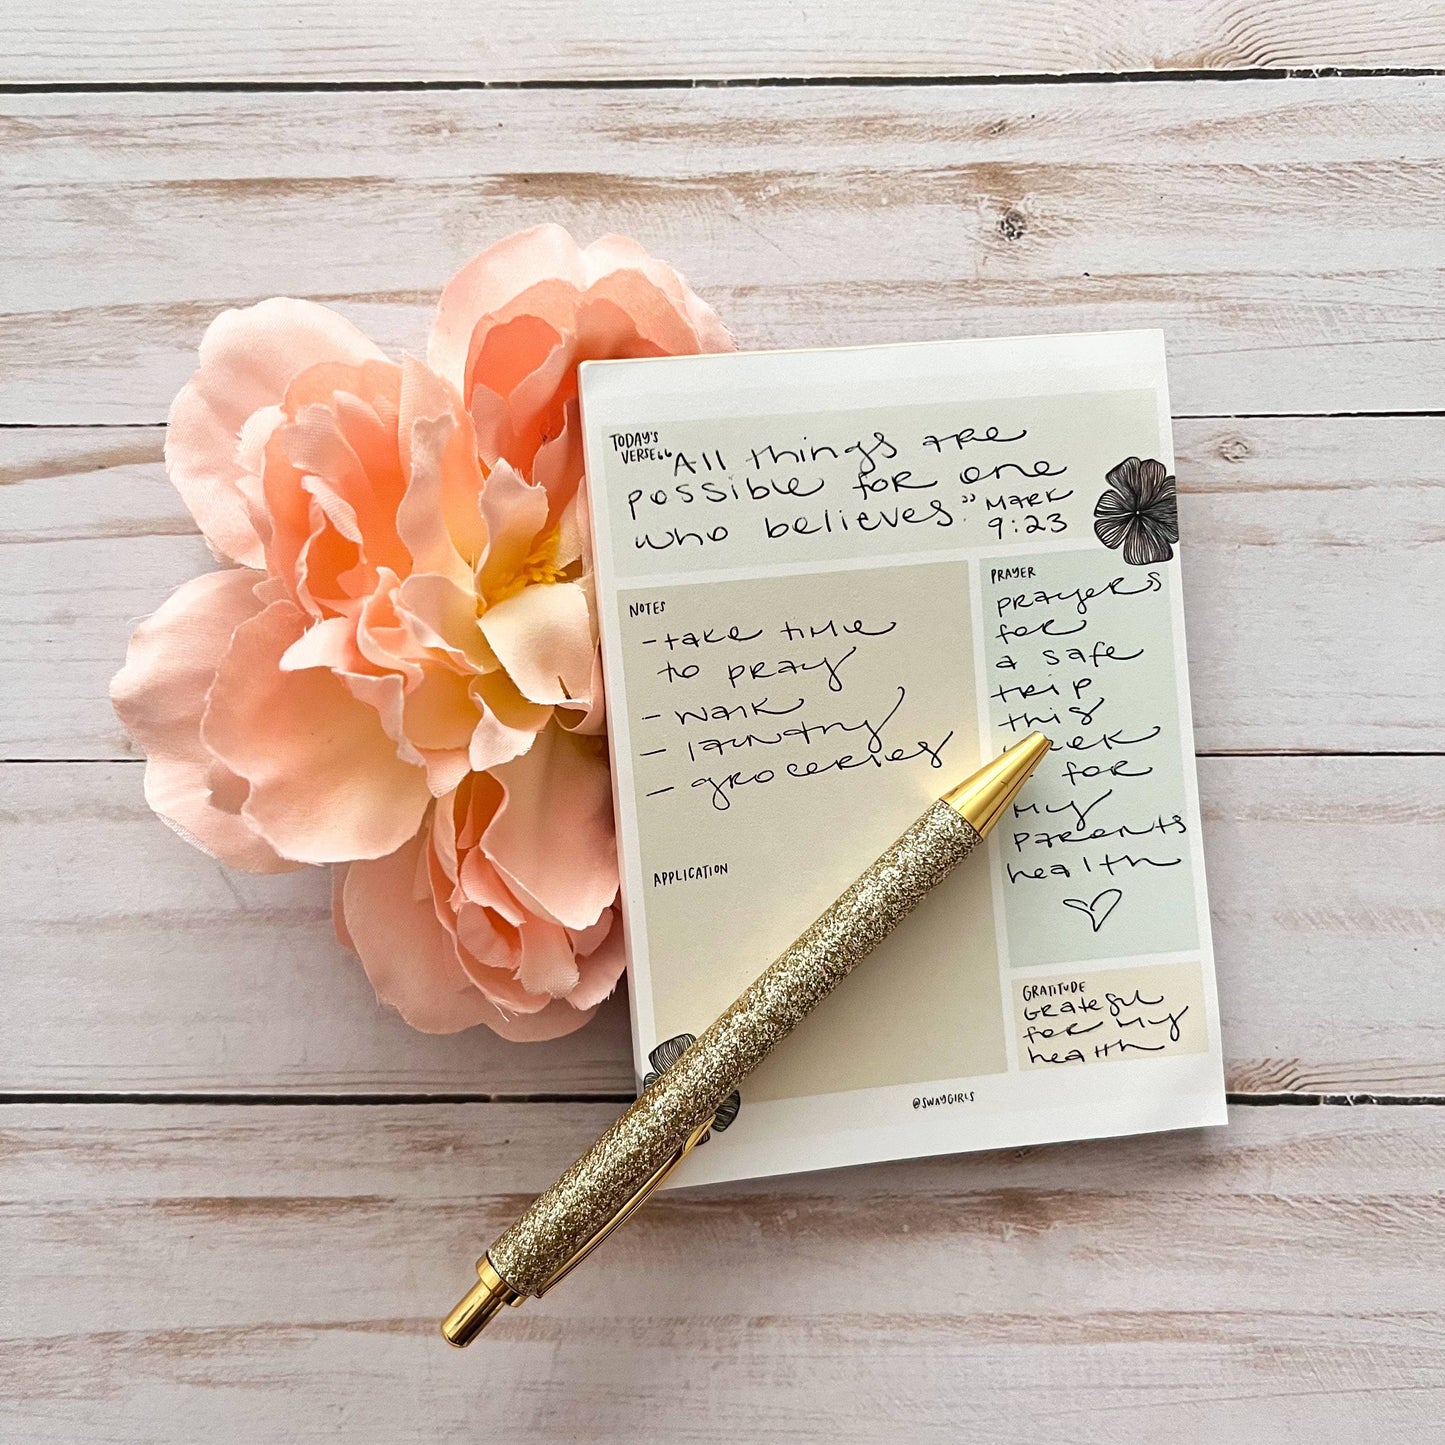 TODAY'S
VERSE
"All things are
possible for one
who believes." Mark
9:23
NOTES
- take time
to pray
- walk
- laundry
- groceries
APPLICATION
PRAYER
prayers
for
a safe
trip
this
for
my
parents
health
GRATITUDE
Grateful
for my
health
@SWAYGIRLS